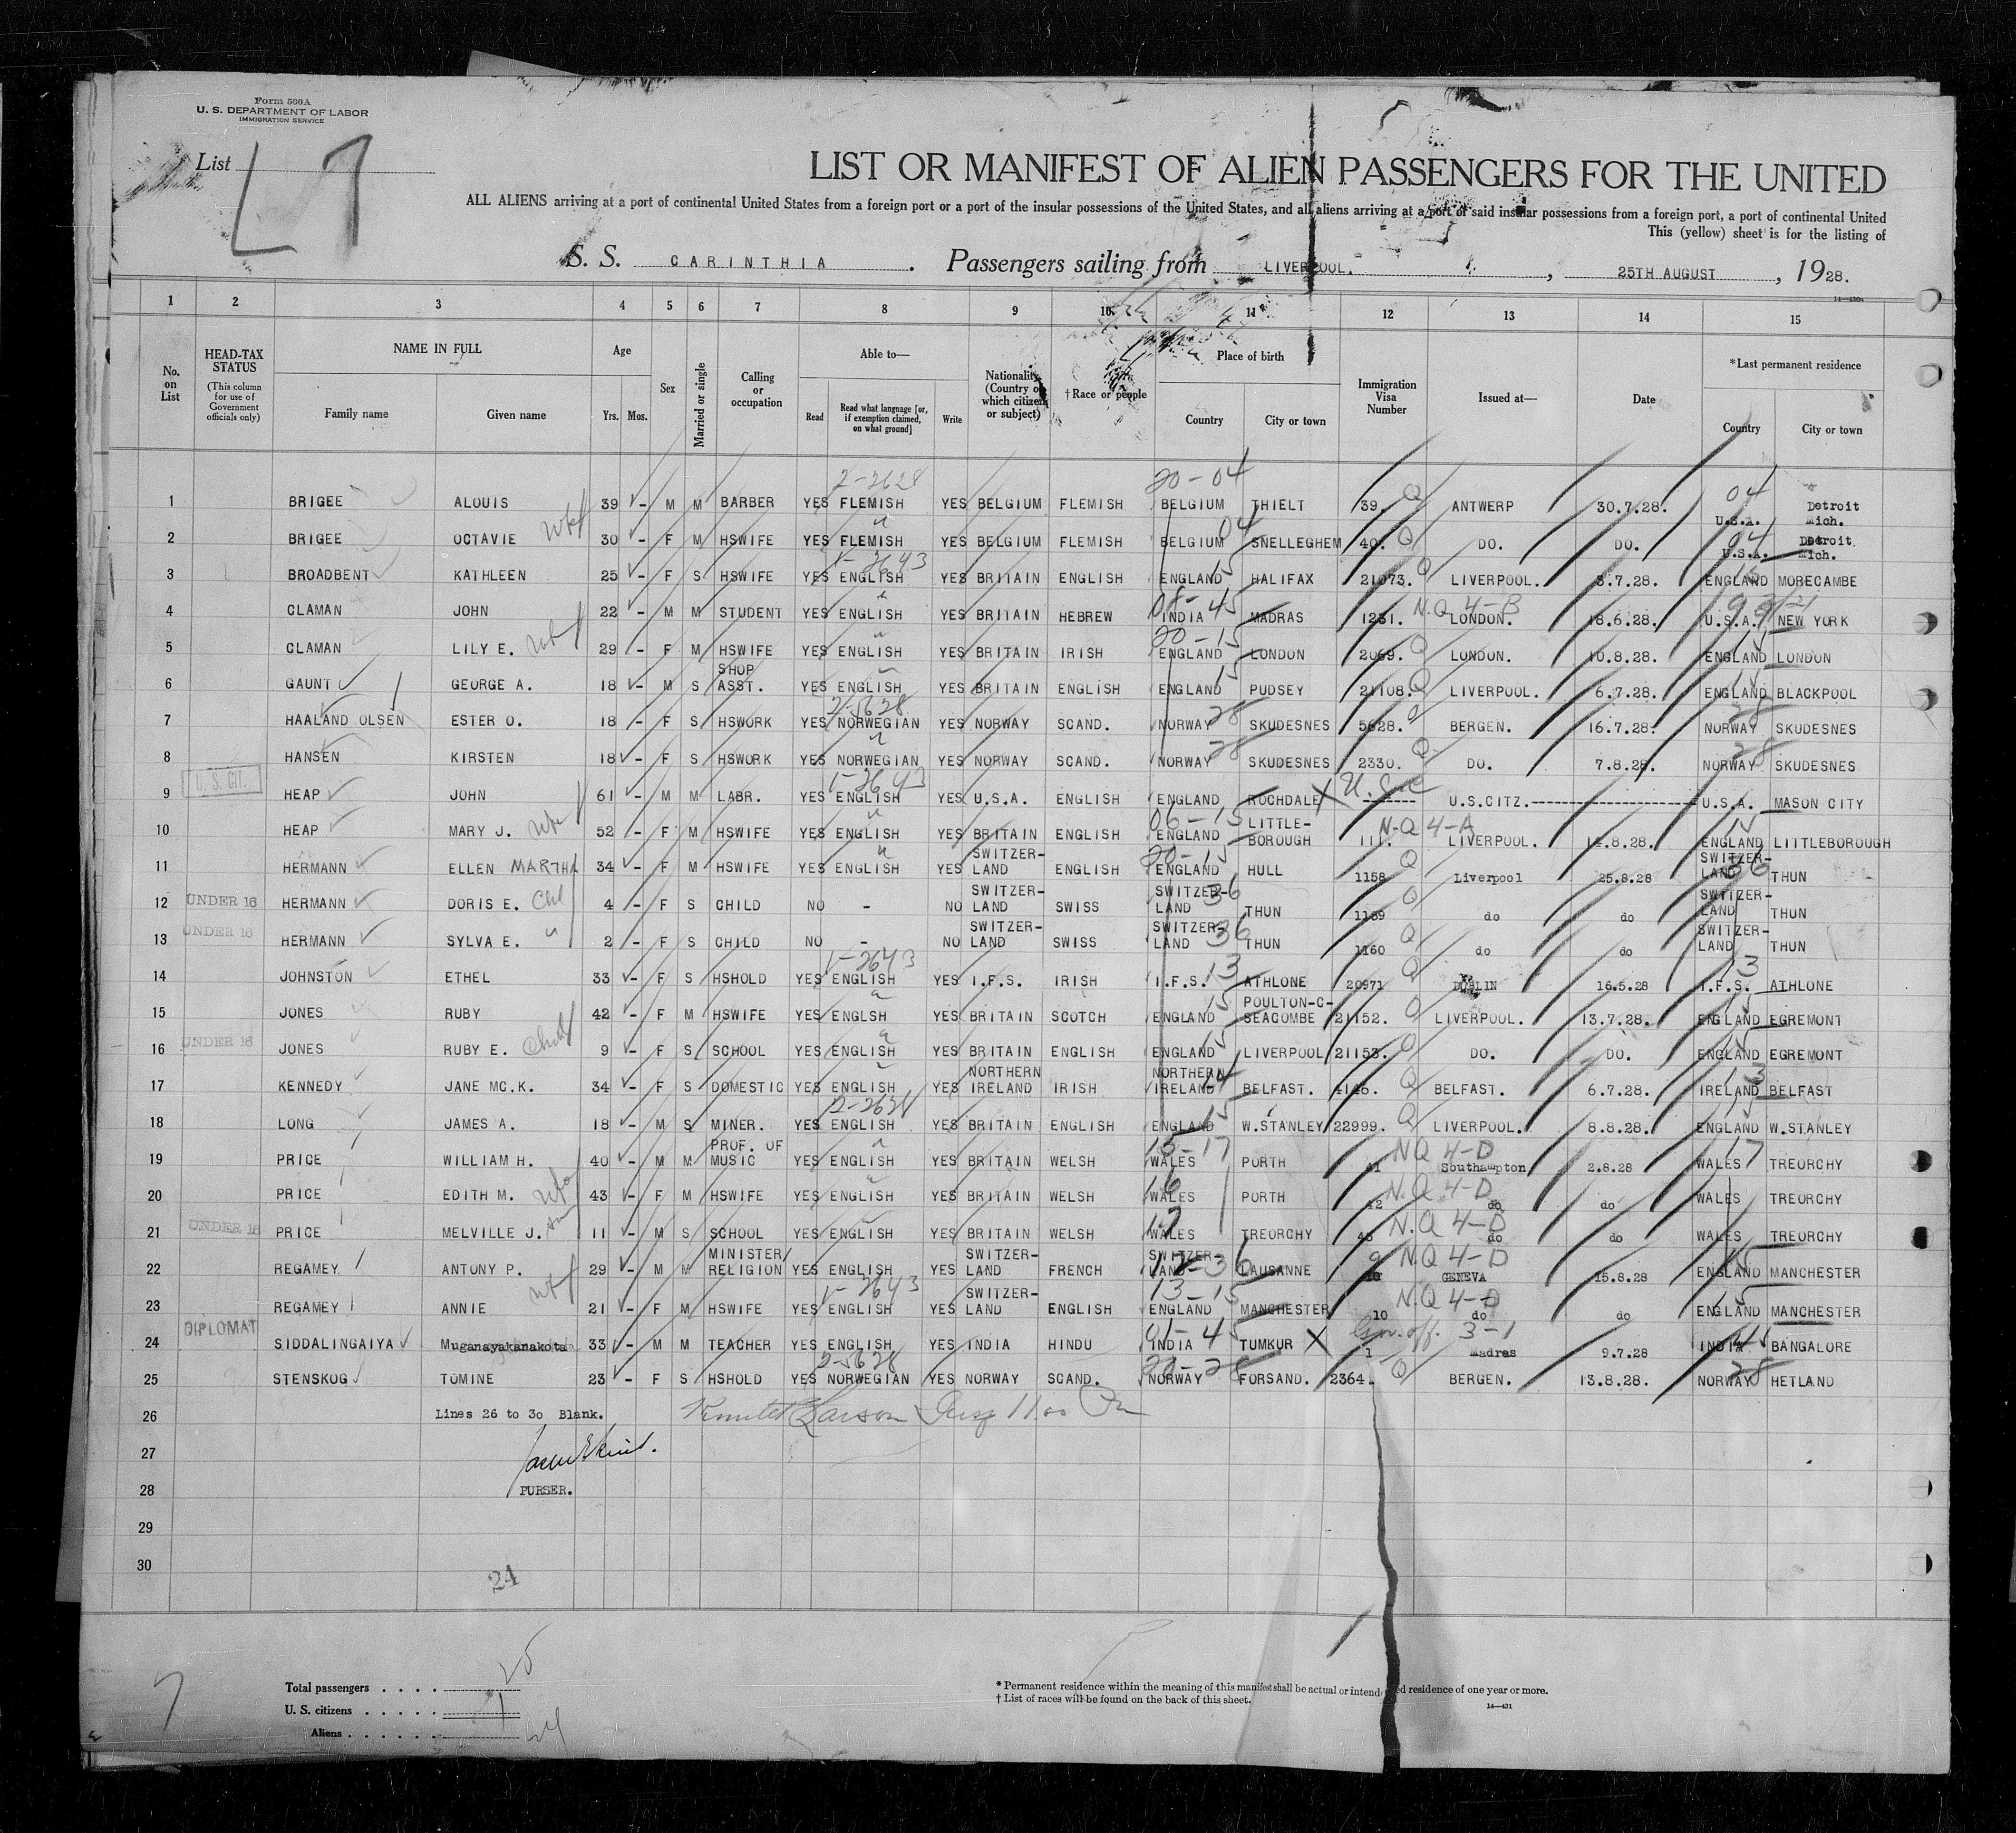 Form 500A
U. S. DEPARTMENT OF LABOR
IMMIGRATION SERVICE
List 7
LIST OR MANIFEST OF ALIEN PASSENGERS FOR THE UNITED
ALL ALIENS arriving at a port of continental United States from a foreign port or a port of the insular possessions of the United States, and all aliens arriving at a port of said insular possessions from a foreign port, a port of continental United
This (yellow) sheet is for the listing of
S. S. CARINTHIA. Passengers sailing from LIVERPOOL. , 25TH AUGUST , 1928.
14—430a
1 2 3 4 5 6 7 8 9 10 11 12 13 14 15
No. on List
HEAD-TAX STATUS
(This column for use of Government officials only)
NAME IN FULL
Family name Given name
Age
Yrs. Mos.
Sex
Married or single
Calling or occupation
Able to—
Read Read what language [or, if exemption claimed, on what ground] Write
Nationality (Country of which citizen or subject)
†Race or people
Place of birth
Country City or town
Immigration Visa Number
Issued at—
Date
*Last permanent residence
Country City or town
2-2628 20-04 04
1 BRIGEE ALOUIS 39 - M M BARBER YES FLEMISH YES BELGIUM FLEMISH BELGIUM THIELT 39. Q ANTWERP 30.7.28. U.S.A. Detroit Mich.
2 BRIGEE OCTAVIE Wf 30 - F M HSWIFE YES FLEMISH YES BELGIUM FLEMISH BELGIUM 04 SNELLEGHEM 40. Q DO. DO. 04 U.S.A. Detroit. Mich.
V-2643
3 BROADBENT KATHLEEN 25 - F S HSWIFE YES ENGLISH YES BRITAIN ENGLISH ENGLAND 15 HALIFAX 21073. Q LIVERPOOL. 3.7.28. ENGLAND 15 MORECAMBE
4 CLAMAN JOHN 22 - M M STUDENT YES ENGLISH YES BRITAIN HEBREW 08-45 INDIA MADRAS 1231. N.Q 4-B LONDON. 18.6.28. U.S.A. NEW YORK
5 CLAMAN LILY E. Wf 29 - F M HSWIFE YES ENGLISH YES BRITAIN IRISH 20-15 ENGLAND LONDON 2069. Q LONDON. 10.8.28. 15 ENGLAND LONDON
6 GAUNT GEORGE A. 18 - M S SHOP ASST. YES ENGLISH YES BRITAIN ENGLISH ENGLAND 15 PUDSEY 21108. Q LIVERPOOL. 6.7.28. 15 ENGLAND BLACKPOOL
2-5628
7 HAALAND OLSEN ESTER O. 18 - F S HSWORK YES NORWEGIAN YES NORWAY SCAND. NORWAY 28 SKUDESNES 5628. Q BERGEN. 16.7.28. NORWAY 28 SKUDESNES
8 HANSEN KIRSTEN 18 - F S HSWORK YES NORWEGIAN YES NORWAY SCAND. NORWAY 28 SKUDESNES 2330. Q DO. 7.8.28. NORWAY 28 SKUDESNES
V-2643
9 U. S. CIT. HEAP JOHN 61 - M M LABR. YES ENGLISH YES U.S.A. ENGLISH ENGLAND ROCHDALE X ------- U.S.CITZ.-------------------- U.S.A. MASON CITY
10 HEAP MARY J. Wf 52 - F M HSWIFE YES ENGLISH YES BRITAIN ENGLISH 06-15 ENGLAND LITTLE-BOROUGH 111. N.Q 4-A LIVERPOOL. 14.8.28. 15 ENGLAND LITTLEBOROUGH
11 HERMANN ELLEN MARTHA 34 - F M HSWIFE YES ENGLISH YES SWITZER-LAND ENGLISH 20-15 ENGLAND HULL 1158 Q Liverpool 25.8.28 SWITZER-LAND 36 THUN
12 UNDER 16 HERMANN DORIS E. Chl 4 - F S CHILD NO - NO SWITZER-LAND SWISS SWITZER-LAND 36 THUN 1159 Q do do SWITZER-LAND THUN
13 UNDER 16 HERMANN SYLVA E. " 2 - F S CHILD NO - NO SWITZER-LAND SWISS SWITZER-LAND 36 THUN 1160 Q do do SWITZER-LAND THUN
V-2643
14 JOHNSTON ETHEL 33 - F S HSHOLD YES ENGLISH YES I.F.S. IRISH I.F.S. 13 ATHLONE 20971 Q DUBLIN 16.5.28 13 I.F.S. ATHLONE
15 JONES RUBY 42 - F M HSWIFE YES ENGLSH YES BRITAIN SCOTCH ENGLAND 15 POULTON-C-SEACOMBE 21152. Q LIVERPOOL. 13.7.28. 15 ENGLAND EGREMONT
16 UNDER 16 JONES RUBY E. Child 9 - F S SCHOOL YES ENGLISH YES BRITAIN ENGLISH ENGLAND 15 LIVERPOOL 21153. Q DO. DO. 15 ENGLAND EGREMONT
17 KENNEDY JANE MC.K. 34 - F S DOMESTIC YES ENGLISH YES NORTHERN IRELAND IRISH NORTHERN IRELAND 14 BELFAST. 4146. Q BELFAST. 6.7.28. 13 IRELAND BELFAST
2-2628
18 LONG JAMES A. 18 - M S MINER. YES ENGLISH YES BRITAIN ENGLISH ENGLAND 15 W.STANLEY 22999. Q LIVERPOOL. 8.8.28. 15 ENGLAND W.STANLEY
19 PRICE WILLIAM H. 40 - M M PROF. OF MUSIC YES ENGLISH YES BRITAIN WELSH 15-17 WALES PORTH 41 NQ 4-D Southampton 2.8.28 WALES 17 TREORCHY
20 PRICE EDITH M. 43 - F M HSWIFE YES ENGLISH YES BRITAIN WELSH 16 WALES PORTH 42 N.Q 4-D do do WALES TREORCHY
21 UNDER 16 PRICE MELVILLE J. 11 - M S SCHOOL YES ENGLISH YES BRITAIN WELSH 17 WALES TREORCHY 43 N.Q 4-D do do WALES TREORCHY
22 REGAMEY ANTONY P. 29 - M M MINISTER RELIGION YES ENGLISH YES SWITZER-LAND FRENCH SWITZER-LAND 12-36 LAUSANNE 9 N.Q 4-D GENEVA 15.8.28 15 ENGLAND MANCHESTER
V-2643
23 REGAMEY ANNIE Wf 21 - F M HSWIFE YES ENGLISH YES SWITZER-LAND ENGLISH 13-15 ENGLAND MANCHESTER 10 N.Q 4-D do do 15 ENGLAND MANCHESTER
24 DIPLOMAT SIDDALINGAIYA Muganayakanakota 33 - M M TEACHER YES ENGLISH YES INDIA HINDU 01-45 INDIA TUMKUR X 1 Gov. off. 3-1 Madras 9.7.28 INDIA 45 BANGALORE
2-5628
25 STENSKOG TOMINE 23 - F S HSHOLD YES NORWEGIAN YES NORWAY SCAND. 20-28 NORWAY FORSAND. 2364. Q BERGEN. 13.8.28. 28 NORWAY HETLAND
26 Lines 26 to 30 Blank. Larson 11.00
27
28 PURSER.
29
30
24
7
Total passengers . . . . 25
U. S. citizens . . . . . 1
Aliens . . . . . . 24
* Permanent residence within the meaning of this manifest shall be actual or intended residence of one year or more.
† List of races will be found on the back of this sheet.
14—431